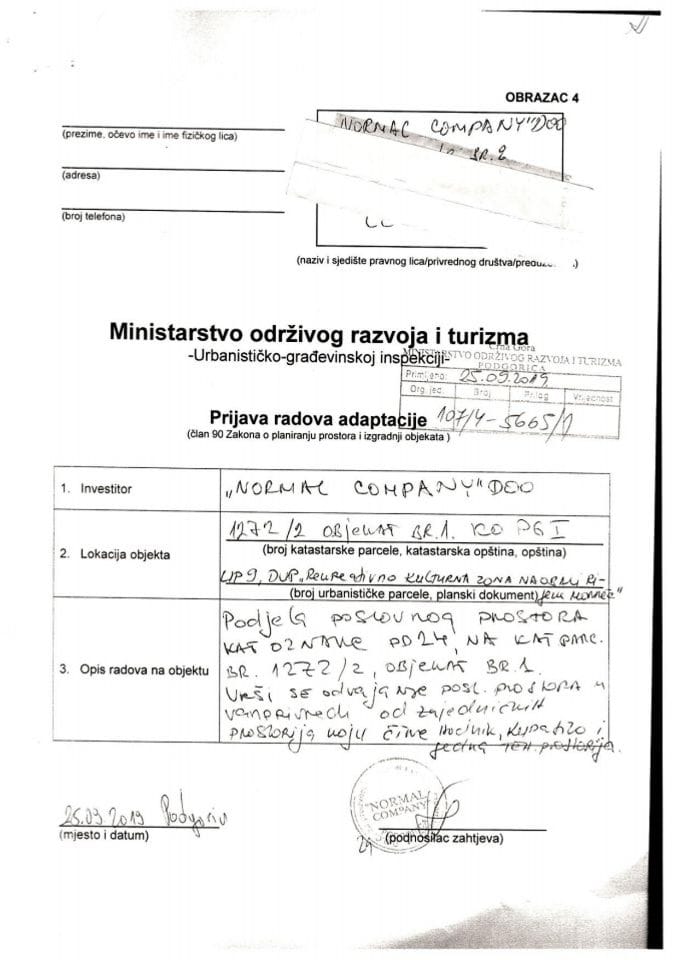 OBRAZAC 4
NORMAL COMPANY"DOO
BR.2
(prezime, očevo ime i ime fizičkog lica)
(adresa)
(broj telefona)
(naziv i sjedište pravnog lica/privrednog društva/preduz .)
Ministarstvo održivog razvoja i turizma
-Urbanističko-građevinskoj inspekciji-
Crna Gora
MINISTARSTVO ODRŽIVOG RAZVOJA I TURIZMA
PODGORICA
Primljeno: 25.09.2019
Org. jed. Broj Prilog Vrijednost
107/4-5665/1
Prijava radova adaptacije
(član 90 Zakona o planiranju prostora i izgradnji objekata )
1. Investitor
„NORMAL COMPANY" DOO
2. Lokacija objekta
1272/2 OBJEKAT BR.1. KO PG I
(broj katastarske parcele, katastarska opština, opština)
UP9, DUP„Rekreativno KULTURNA ZONA NA OBALI RI-
(broj urbanističke parcele, planski dokument) jeke MORAČE"
3. Opis radova na objektu
Podjela poslovnog PROSTORA
KAT OZNAKE PD24, NA KAT PARC.
BR. 1272/2, OBJEKAT BR.1.
VRŠI SE odvajanje posl. PROSTORA u
vanprivredi od zajedničkih
PROSTORIJA koju čine Hodnik, Kupatilo i
jedna TEH. PROSTORIJA.
25.09.2019 Podgorica
(mjesto i datum)
"NORMAL
COMPANY"
(podnosilac zahtjeva)